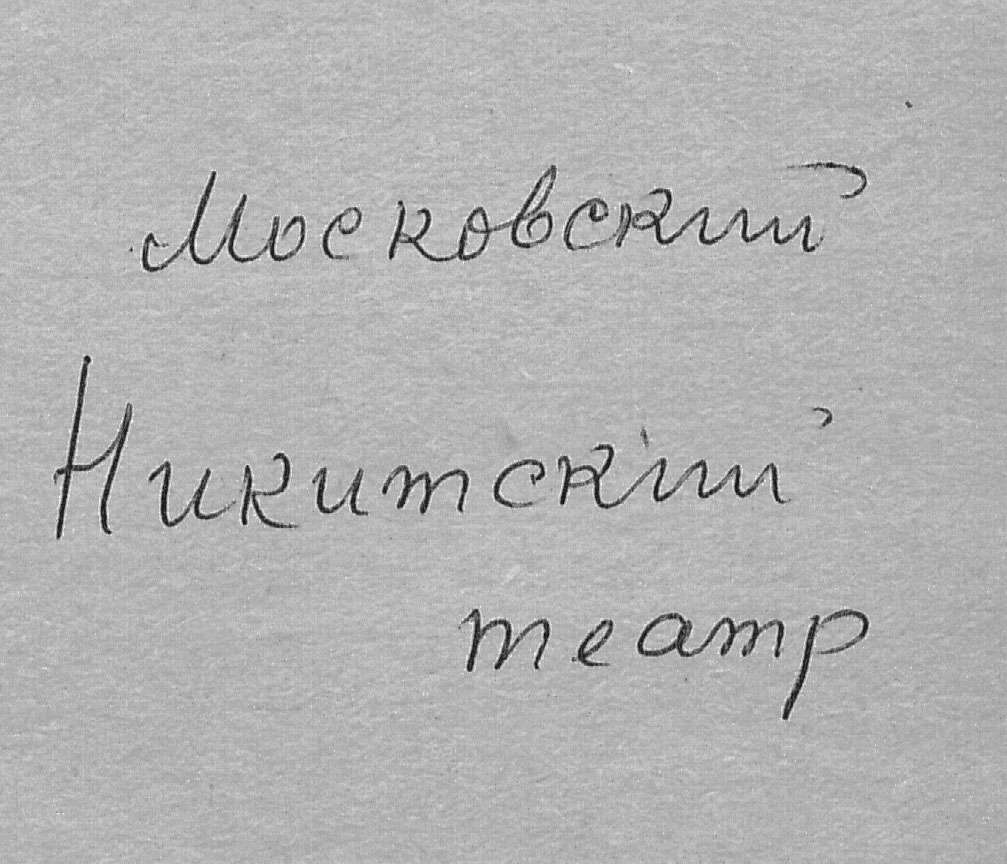 Московский
Никитский
театр